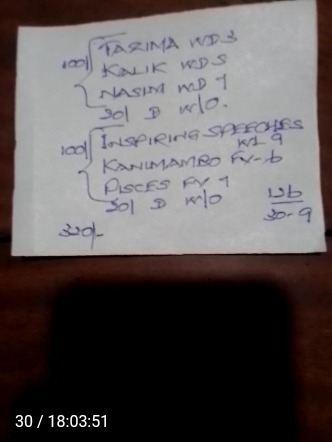 100/ TASIMA WD3
KALIK WD5
NASIM WD 9
20/ D W/O.
100/ INSPIRING SPEECHES
W1 9
KANIMAMBO FV-6
PISCES FV 9
20/ D W/O
126
30-9
320/-
30 / 18:03:51